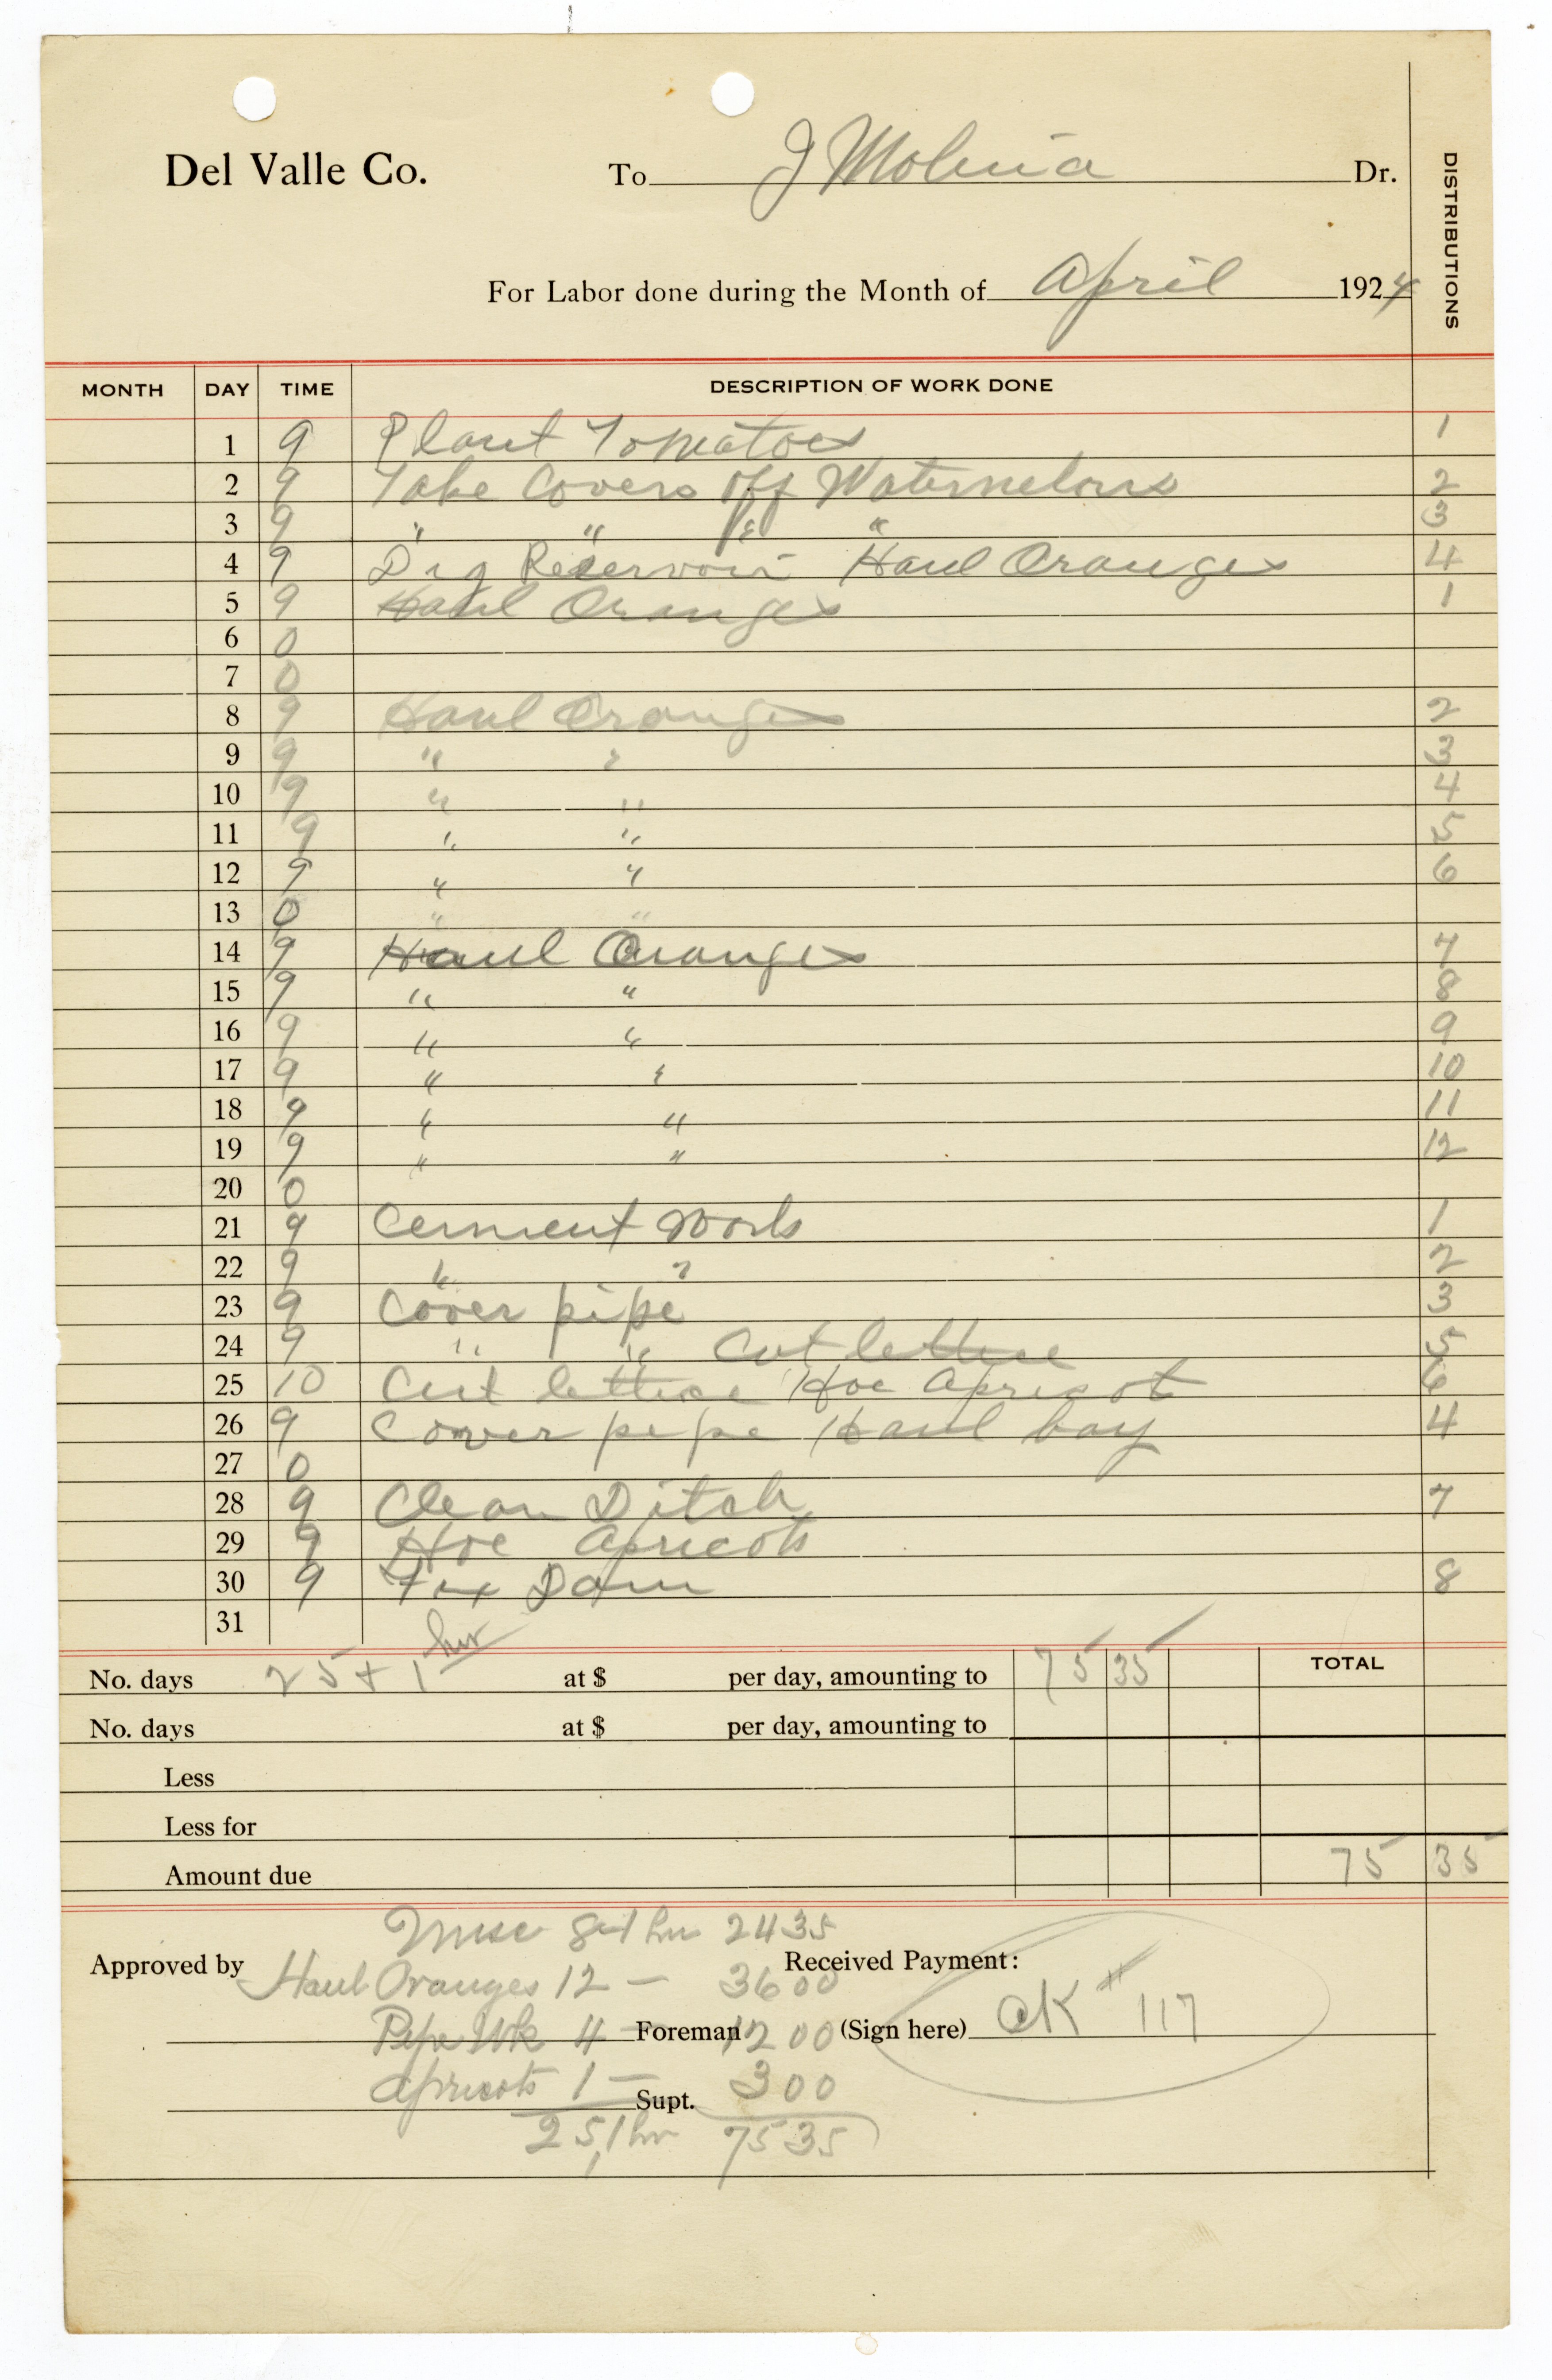 Del Valle Co. To J Molina Dr.
DISTRIBUTIONS
For Labor done during the Month of April 1924
MONTH DAY TIME DESCRIPTION OF WORK DONE
1 9 Plant Tomatoes 1
2 9 Take Covers off Watermelons 2
3 9 " " " " 3
4 9 Dig Reservoir Haul Oranges 4
5 9 Haul Oranges 1
6 0
7 0
8 9 Haul Oranges 2
9 9 " " 3
10 9 " " 4
11 9 " " 5
12 9 " " 6
13 0 " "
14 9 Haul Oranges 7
15 9 " " 8
16 9 " " 9
17 9 " " 10
18 9 " " 11
19 9 " " 12
20 0
21 9 Cement Work 1
22 9 " " 2
23 9 Cover pipe 3
24 9 " " Cut lettuce 5
25 10 Cut lettuce Hoe Apricot 6
26 9 Cover pipe Haul hay 4
27 0
28 9 Clean Ditch 7
29 9 Hoe Apricots
30 9 Fix Dam 8
31
No. days 25 + 1 hr at $ per day, amounting to 75 35 TOTAL
No. days at $ per day, amounting to
Less
Less for
Amount due 75 35
Misc 8-1 hr 24 35
Approved by Received Payment:
Haul Oranges 12 — 36 00
Pipe Wk 4 — 12 00
Foreman (Sign here) CK # 117
Apricots 1 — 3 00
Supt.
25,1 hr 75 35